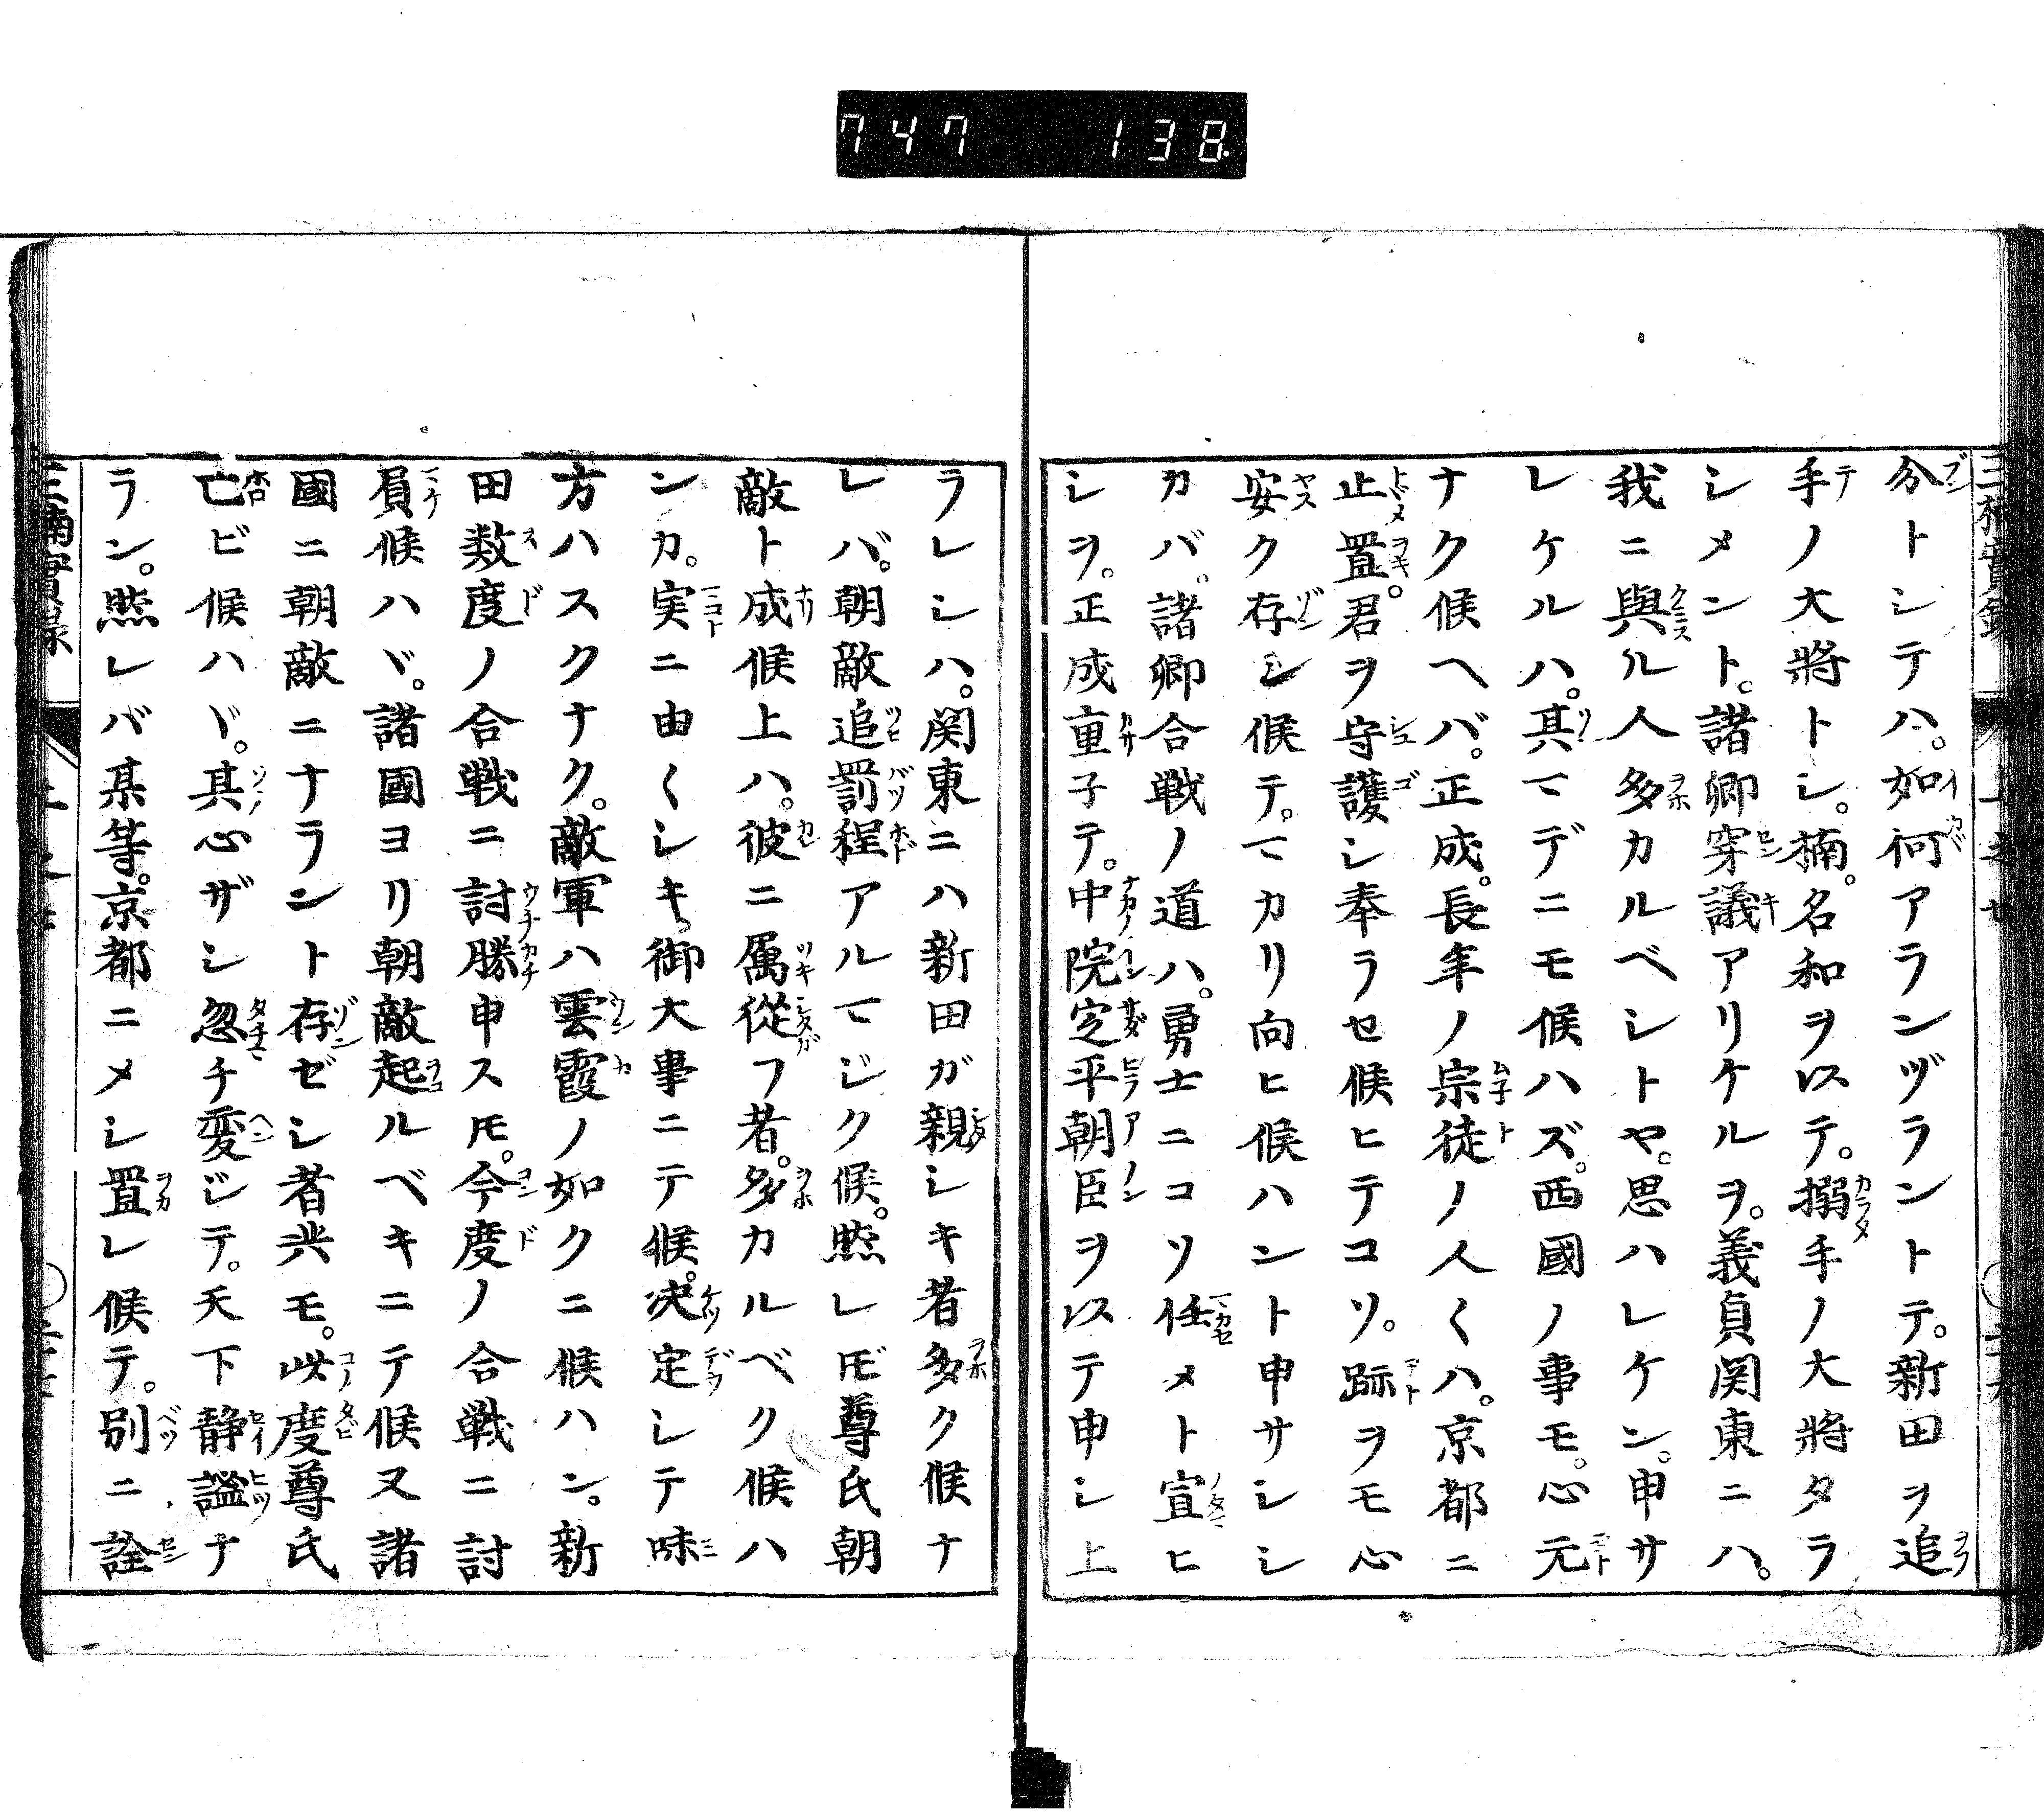 747 138
分トシテハ。如何アランヅラントテ。新田ヲ追
手ノ大將トシ。楠。名和ヲ以テ。搦手ノ大將タラ
シメント。諸卿穿議アリケルヲ。義貞関東ニハ。
我ニ與ル人多カルベシトヤ。思ハレケン。申サ
レケルハ。其マデニモ候ハズ。西國ノ事モ。心元
ナク候ヘバ。正成。長年ノ宗徒ノ人〱ハ。京都ニ
止置。君ヲ守護シ奉ラセ候ヒテコソ。跡ヲモ心
安ク存シ候テ。マカリ向ヒ候ハント申サシシ
カバ。諸卿合戦ノ道ハ。勇士ニコソ任メト宣ヒ
シヲ。正成重子テ。中院定平朝臣ヲ以テ申シ上
ラレシハ。関東ニハ新田ガ親シキ者多ク候ナ
レバ。朝敵追罰程アルマジク候。然レ𪜈尊氏朝
敵ト成候上ハ。彼ニ属從フ者。多カルベク候ハ
ンカ。実ニ由〱シキ御大事ニテ候。决定シテ味
方ハスクナク。敵軍ハ雲霞ノ如クニ候ハン。新
田数度ノ合戦ニ討勝申ス𪜈。今度ノ合戦ニ討
負候ハヾ。諸國ヨリ朝敵起ルベキニテ候又諸
國ニ朝敵ニナラント存ゼシ者共モ。此度尊氏
亡ビ候ハヾ。其心ザシ忽チ変ジテ。天下静謐ナ
ラン。然レバ某等。京都ニメシ置レ候テ。別ニ詮